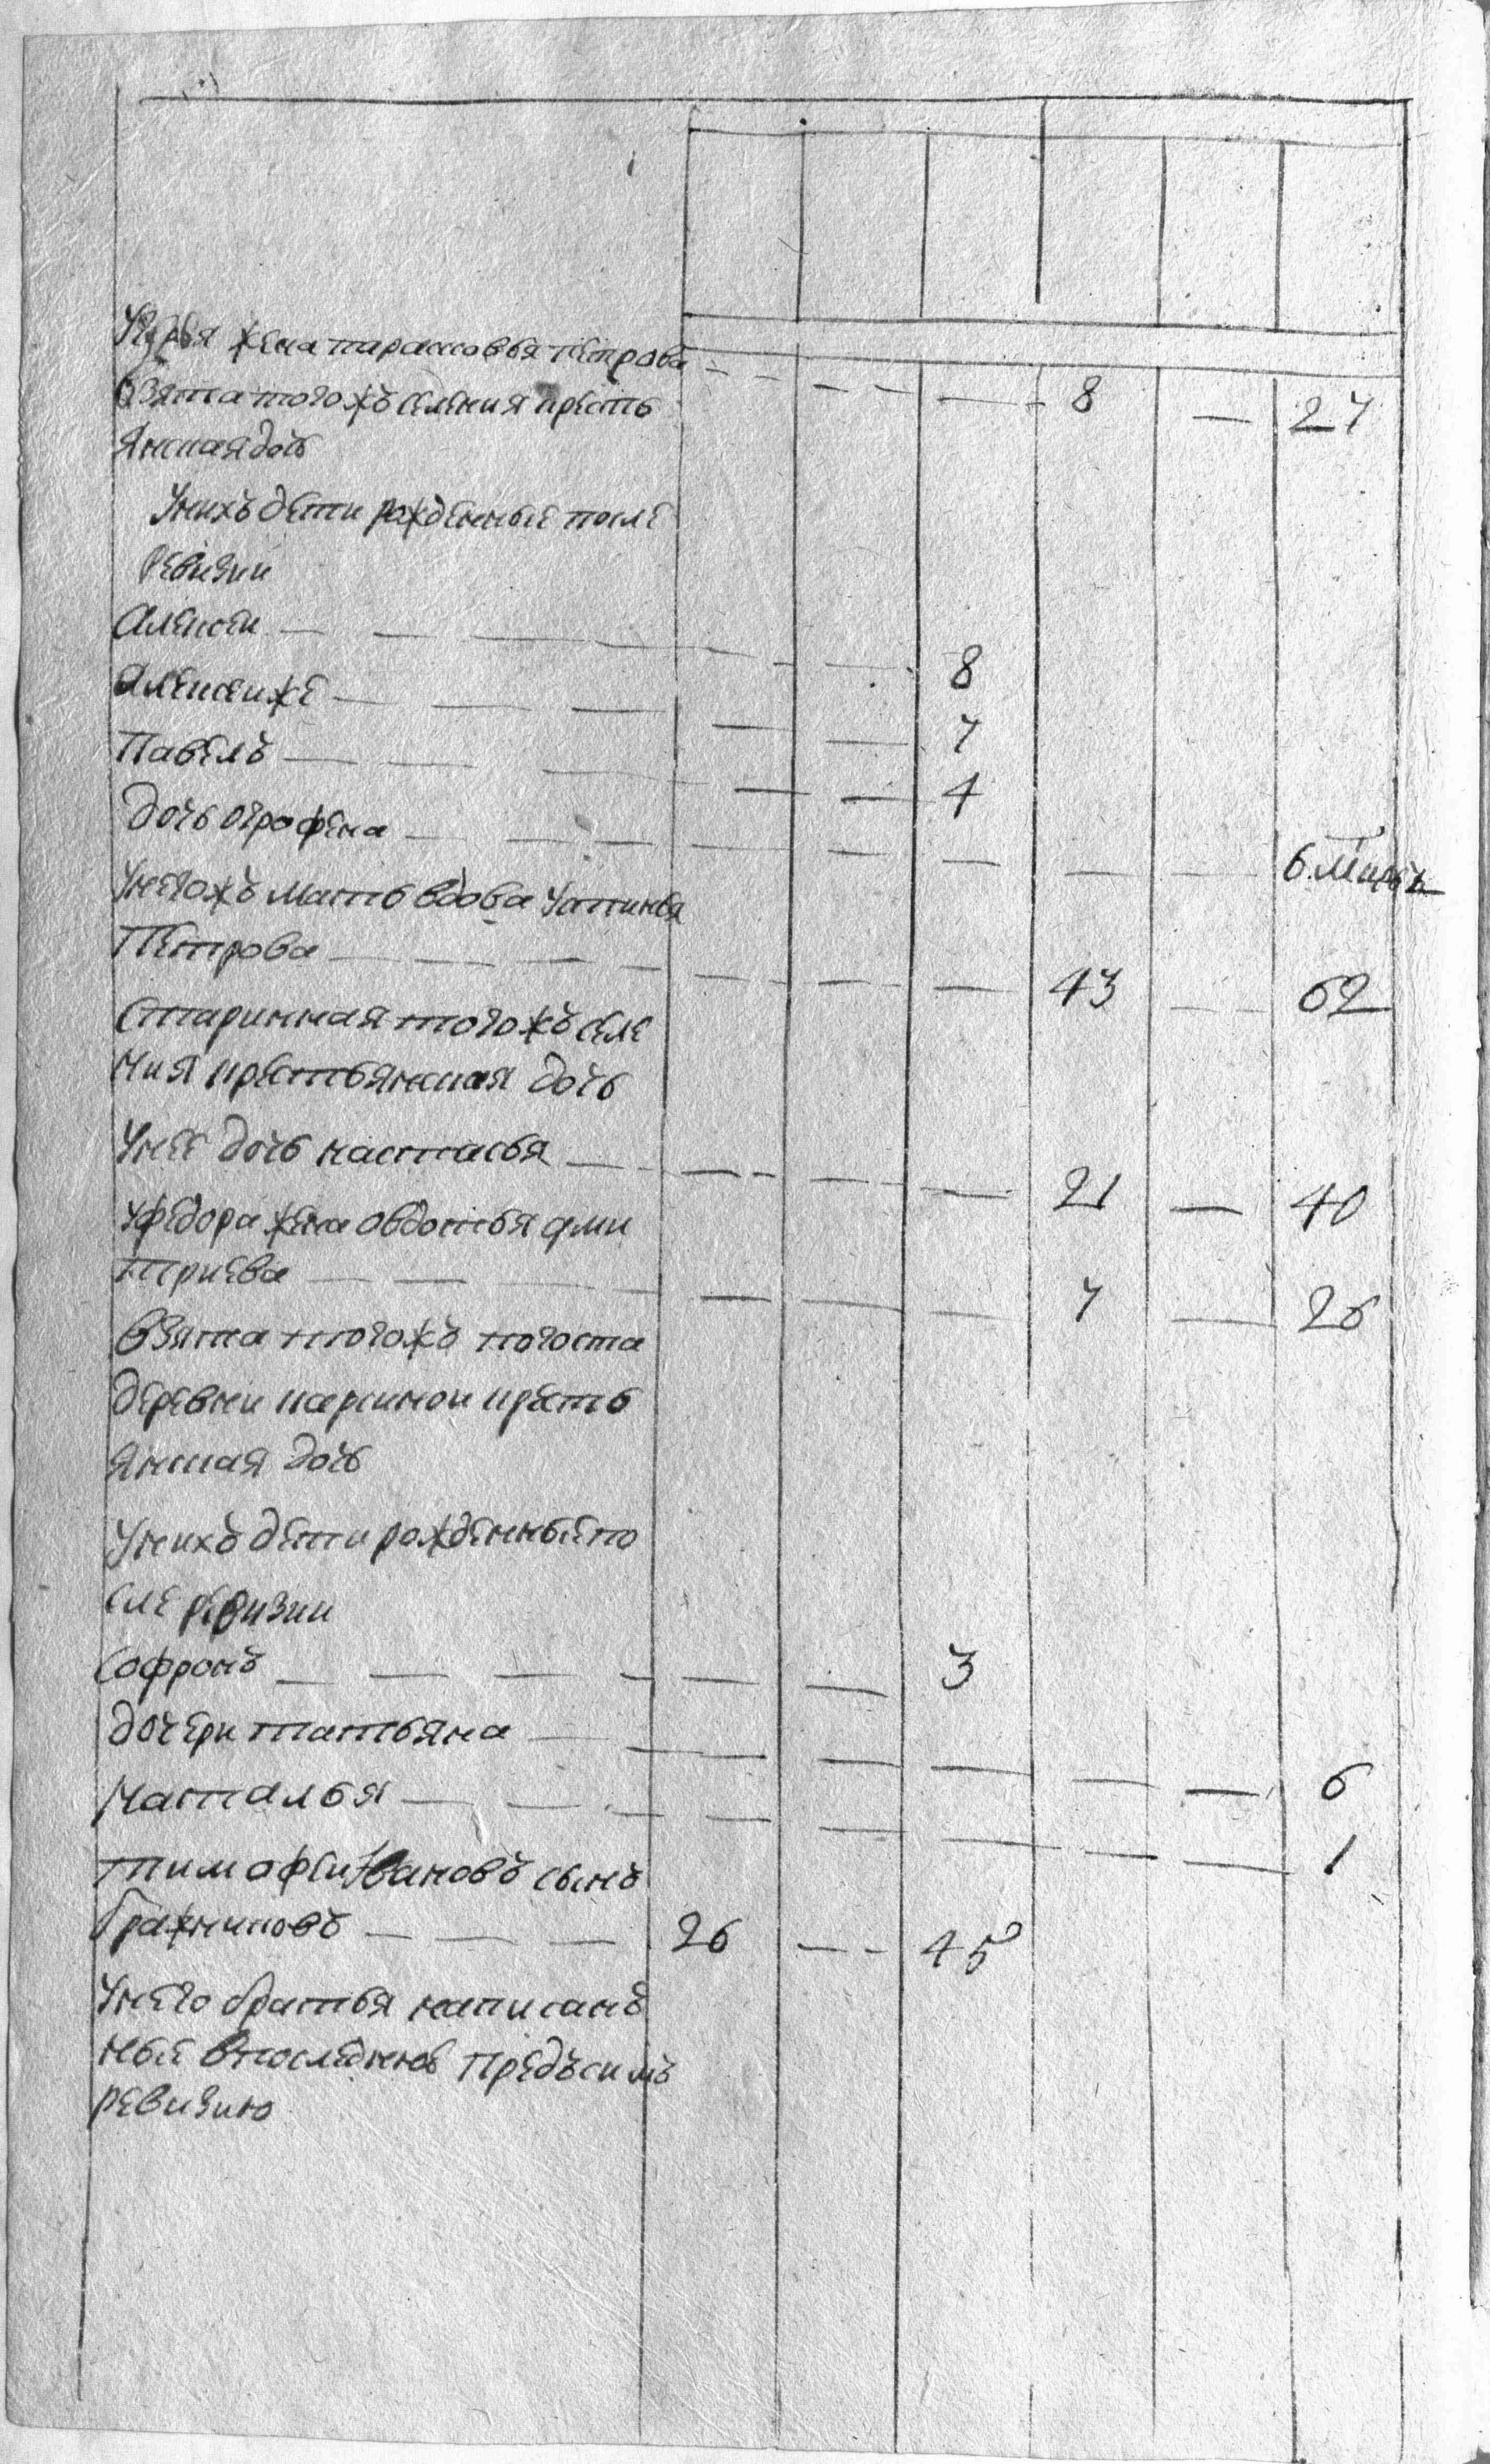 жена парасковья петрова
взята тогожъ селения кресть 8 — 27
янская дочь
Унихъ дети рожденные после
ревизии
Алексеи 8
Алексеиже 7
Павелъ 4
дочь огрофена 6 мецов
Унегожъ мать вдова устинья
Петрова 43 62
старинная тогожъ селе
ния крестьянская дочь
Унее дочь настасья 21 — 40
уфедора жена овдотья дми
триева 7 — 26
взята тогожъ погоста
деревни кресть
янская дочь
Унихъ дети рожденные по
сле ревизии
Софронъ 3
дочери татьяна 6
Наталья 1
тимофеи Ивановъ сынъ
бражниковъ 26 — 45
Унего братья написанъ
ные впоследнюю предъсимъ
ревизию